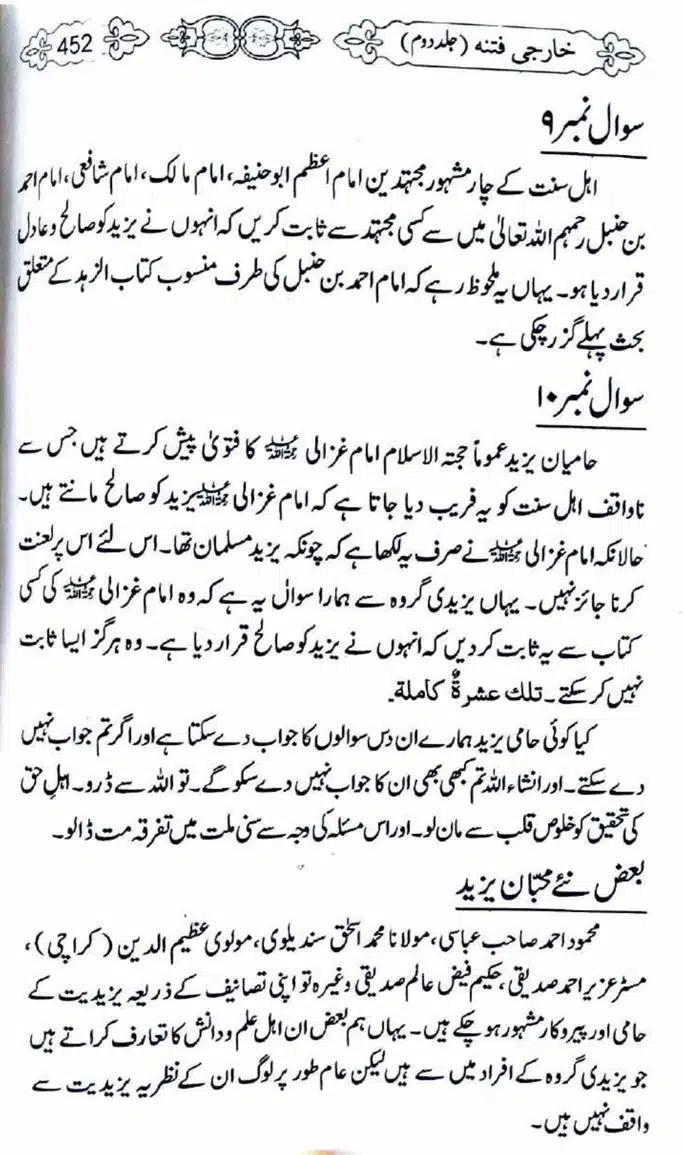 خارجی فتنہ (جلد دوم)
452
سوال نمبر ۹
اہل سنت کے چار مشہور مجتہدین امام اعظم ابوحنیفہ، امام مالک، امام شافعی، امام احمد
بن حنبل رحمہم اللہ تعالیٰ میں سے کسی مجتہد سے ثابت کریں کہ انہوں نے یزید کو صالح و عادل
قرار دیا ہو۔ یہاں یہ ملحوظ رہے کہ امام احمد بن حنبل کی طرف منسوب کتاب الزہد کے متعلق
بحث پہلے گزر چکی ہے۔
سوال نمبر ۱۰
حامیان یزید عموماً حجتہ الاسلام امام غزالی رحمۃ اللہ علیہ کا فتویٰ پیش کرتے ہیں جس سے
ناواقف اہل سنت کو یہ فریب دیا جاتا ہے کہ امام غزالی رحمۃ اللہ علیہ یزید کو صالح مانتے ہیں۔
حالانکہ امام غزالی رحمۃ اللہ علیہ نے صرف یہ لکھا ہے کہ چونکہ یزید مسلمان تھا۔ اس لئے اس پر لعنت
کرنا جائز نہیں۔ یہاں یزیدی گروہ سے ہمارا سوال یہ ہے کہ وہ امام غزالی رحمۃ اللہ علیہ کی کسی
کتاب سے یہ ثابت کر دیں کہ انہوں نے یزید کو صالح قرار دیا ہے۔ وہ ہرگز ایسا ثابت
نہیں کر سکتے۔ تلك عشرۃٌ کاملة۔
کیا کوئی حامی یزید ہمارے ان دس سوالوں کا جواب دے سکتا ہے اور اگر تم جواب نہیں
دے سکتے۔ اور انشاء اللہ تم کبھی بھی ان کا جواب نہیں دے سکو گے۔ تو اللہ سے ڈرو۔ اہل حق
کی تحقیق کو خلوص قلب سے مان لو۔ اور اس مسئلہ کی وجہ سے سنی ملت میں تفرقہ مت ڈالو۔
بعض نئے محبّان یزید
محمود احمد صاحب عباسی، مولانا محمد اسحٰق سندیلوی، مولوی عظیم الدین (کراچی)،
مسٹر عزیر احمد صدیقی، حکیم فیض عالم صدیقی وغیرہ تو اپنی تصانیف کے ذریعہ یزیدیت کے
حامی اور پیروکار مشہور ہو چکے ہیں۔ یہاں ہم بعض ان اہل علم و دانش کا تعارف کراتے ہیں
جو یزیدی گروہ کے افراد میں سے ہیں لیکن عام طور پر لوگ ان کے نظریہ یزیدیت سے
واقف نہیں ہیں۔